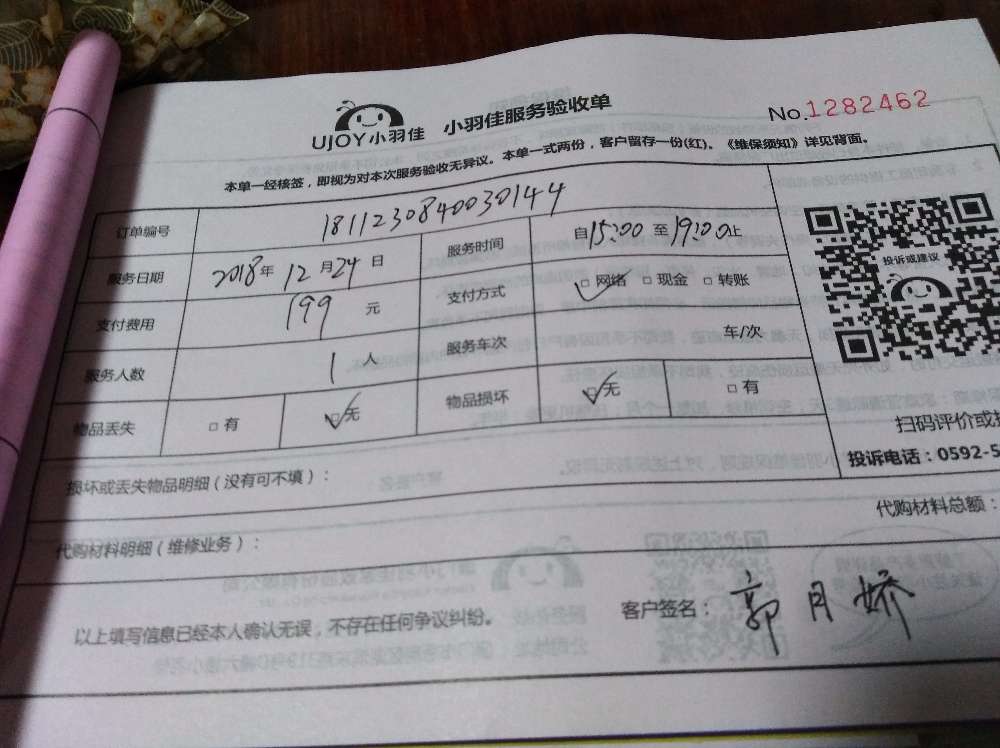 UJOY小羽佳 小羽佳服务验收单 No.1282462
本单一经核签，即视为对本次服务验收无异议。本单一式两份，客户留存一份(红)。《维保须知》详见背面。
订单编号 1811230840030144 服务时间 自15:00至19:00止
服务日期 2018年12月24日 支付方式 □网络 □现金 □转账
支付费用 199元 服务车次 车/次
服务人数 1人 物品损坏 □无 □有
物品丢失 □有 □无
投诉或建议
扫码评价或
投诉电话：0592-5
损坏或丢失物品明细（没有可不填）：
代购材料总额：
代购材料明细（维修业务）：
以上填写信息已经本人确认无误，不存在任何争议纠纷。 客户签名：郭月娇